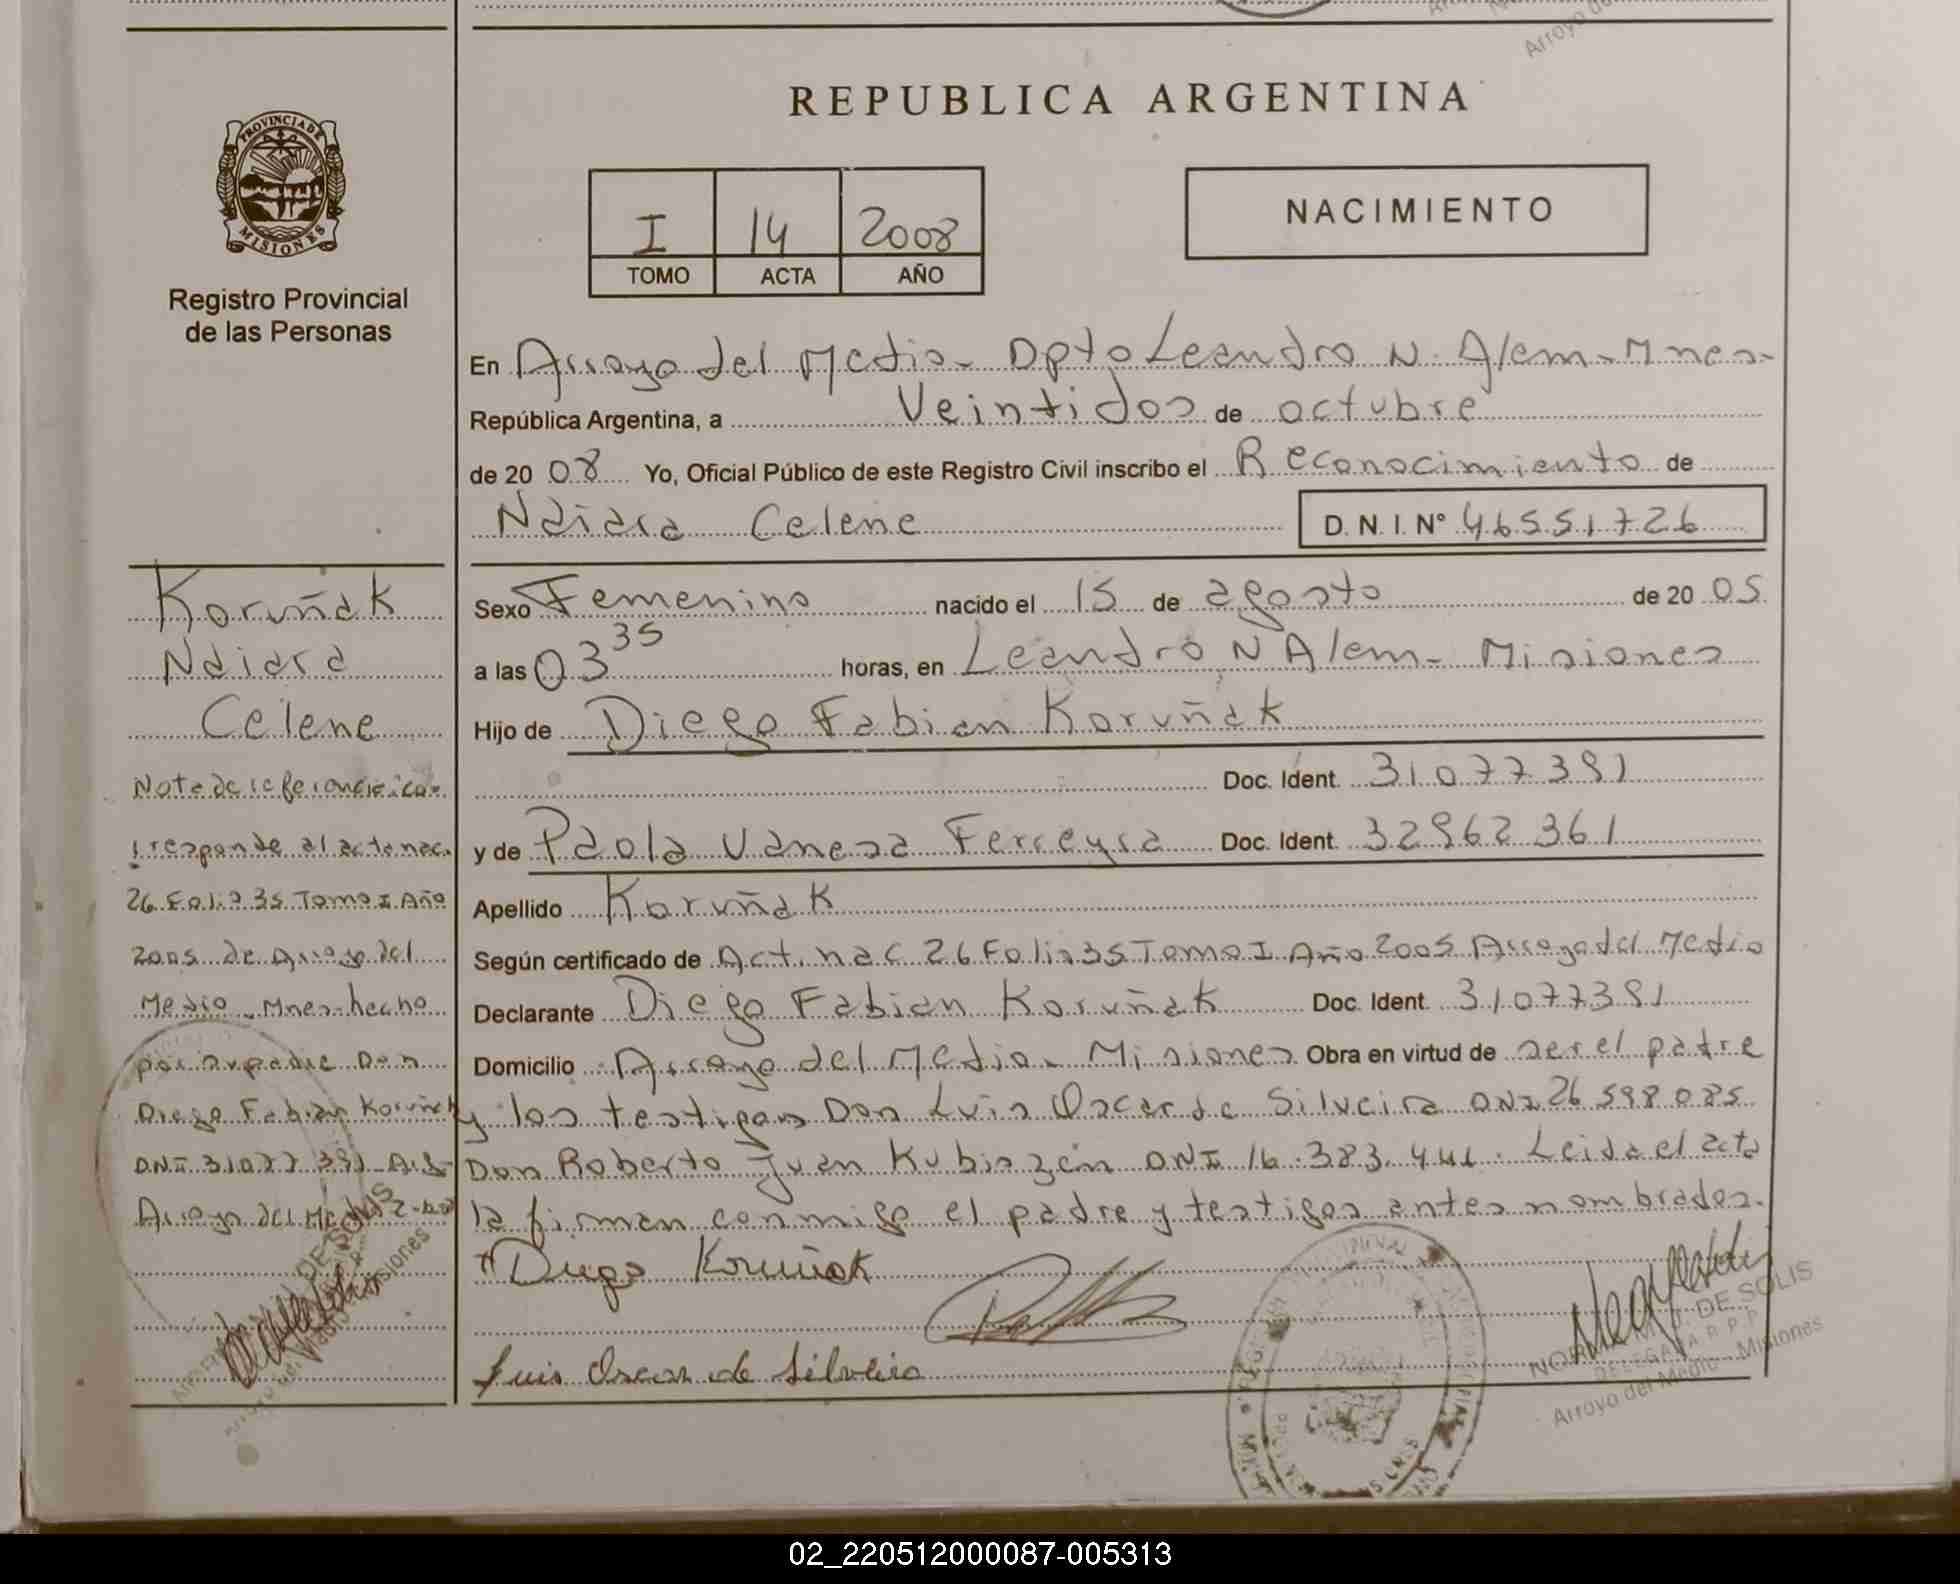 REPUBLICA ARGENTINA
PROVINCIA DE MISIONES
Registro Provincial
de las Personas
I 14 2008
TOMO ACTA AÑO
NACIMIENTO
En Arroyo del Medio - Dpto Leandro N. Alem - Mnes -
República Argentina, a Veintidos de octubre
de 20 08 Yo, Oficial Público de este Registro Civil inscribo el Reconocimiento de
Naiara Celene D. N. I. N° 46551726
Sexo Femenino nacido el 15 de agosto de 20 05
a las 03 35 horas, en Leandro N Alem - Misiones
Hijo de Diego Fabian Koruñak
Doc. Ident. 31077391
y de Paola Vanesa Ferreyra Doc. Ident. 32962361
Apellido Koruñak
Según certificado de Act. nac 26 Folio 35 Tomo I Año 2005 Arroyo del Medio
Declarante Diego Fabian Koruñak Doc. Ident. 31077391
Domicilio Arroyo del Medio - Misiones Obra en virtud de ser el padre
y los testigos Don Luis Oscar de Silveira DNI 26 598 085
Don Roberto Juan Kubiszen DNI 16.383.441. Leida el acta
la firman conmigo el padre y testigos antes nombrados.
Diego Koruñak
Luis Oscar de Silveira
DE SOLIS
DELEGADA R.P.P.
Arroyo del Medio - Misiones
Koruñak
Naiara
Celene
Nota de referencia: co-
rresponde al acta nac.
26 Folio 35 Tomo I Año
2005 de Arroyo del
Medio - Mnes - hecho
por su padre Don
Diego Fabian Koruñak
DNI 31077 391
Arroyo del
DE SOLIS
Misiones
02_220512000087-005313